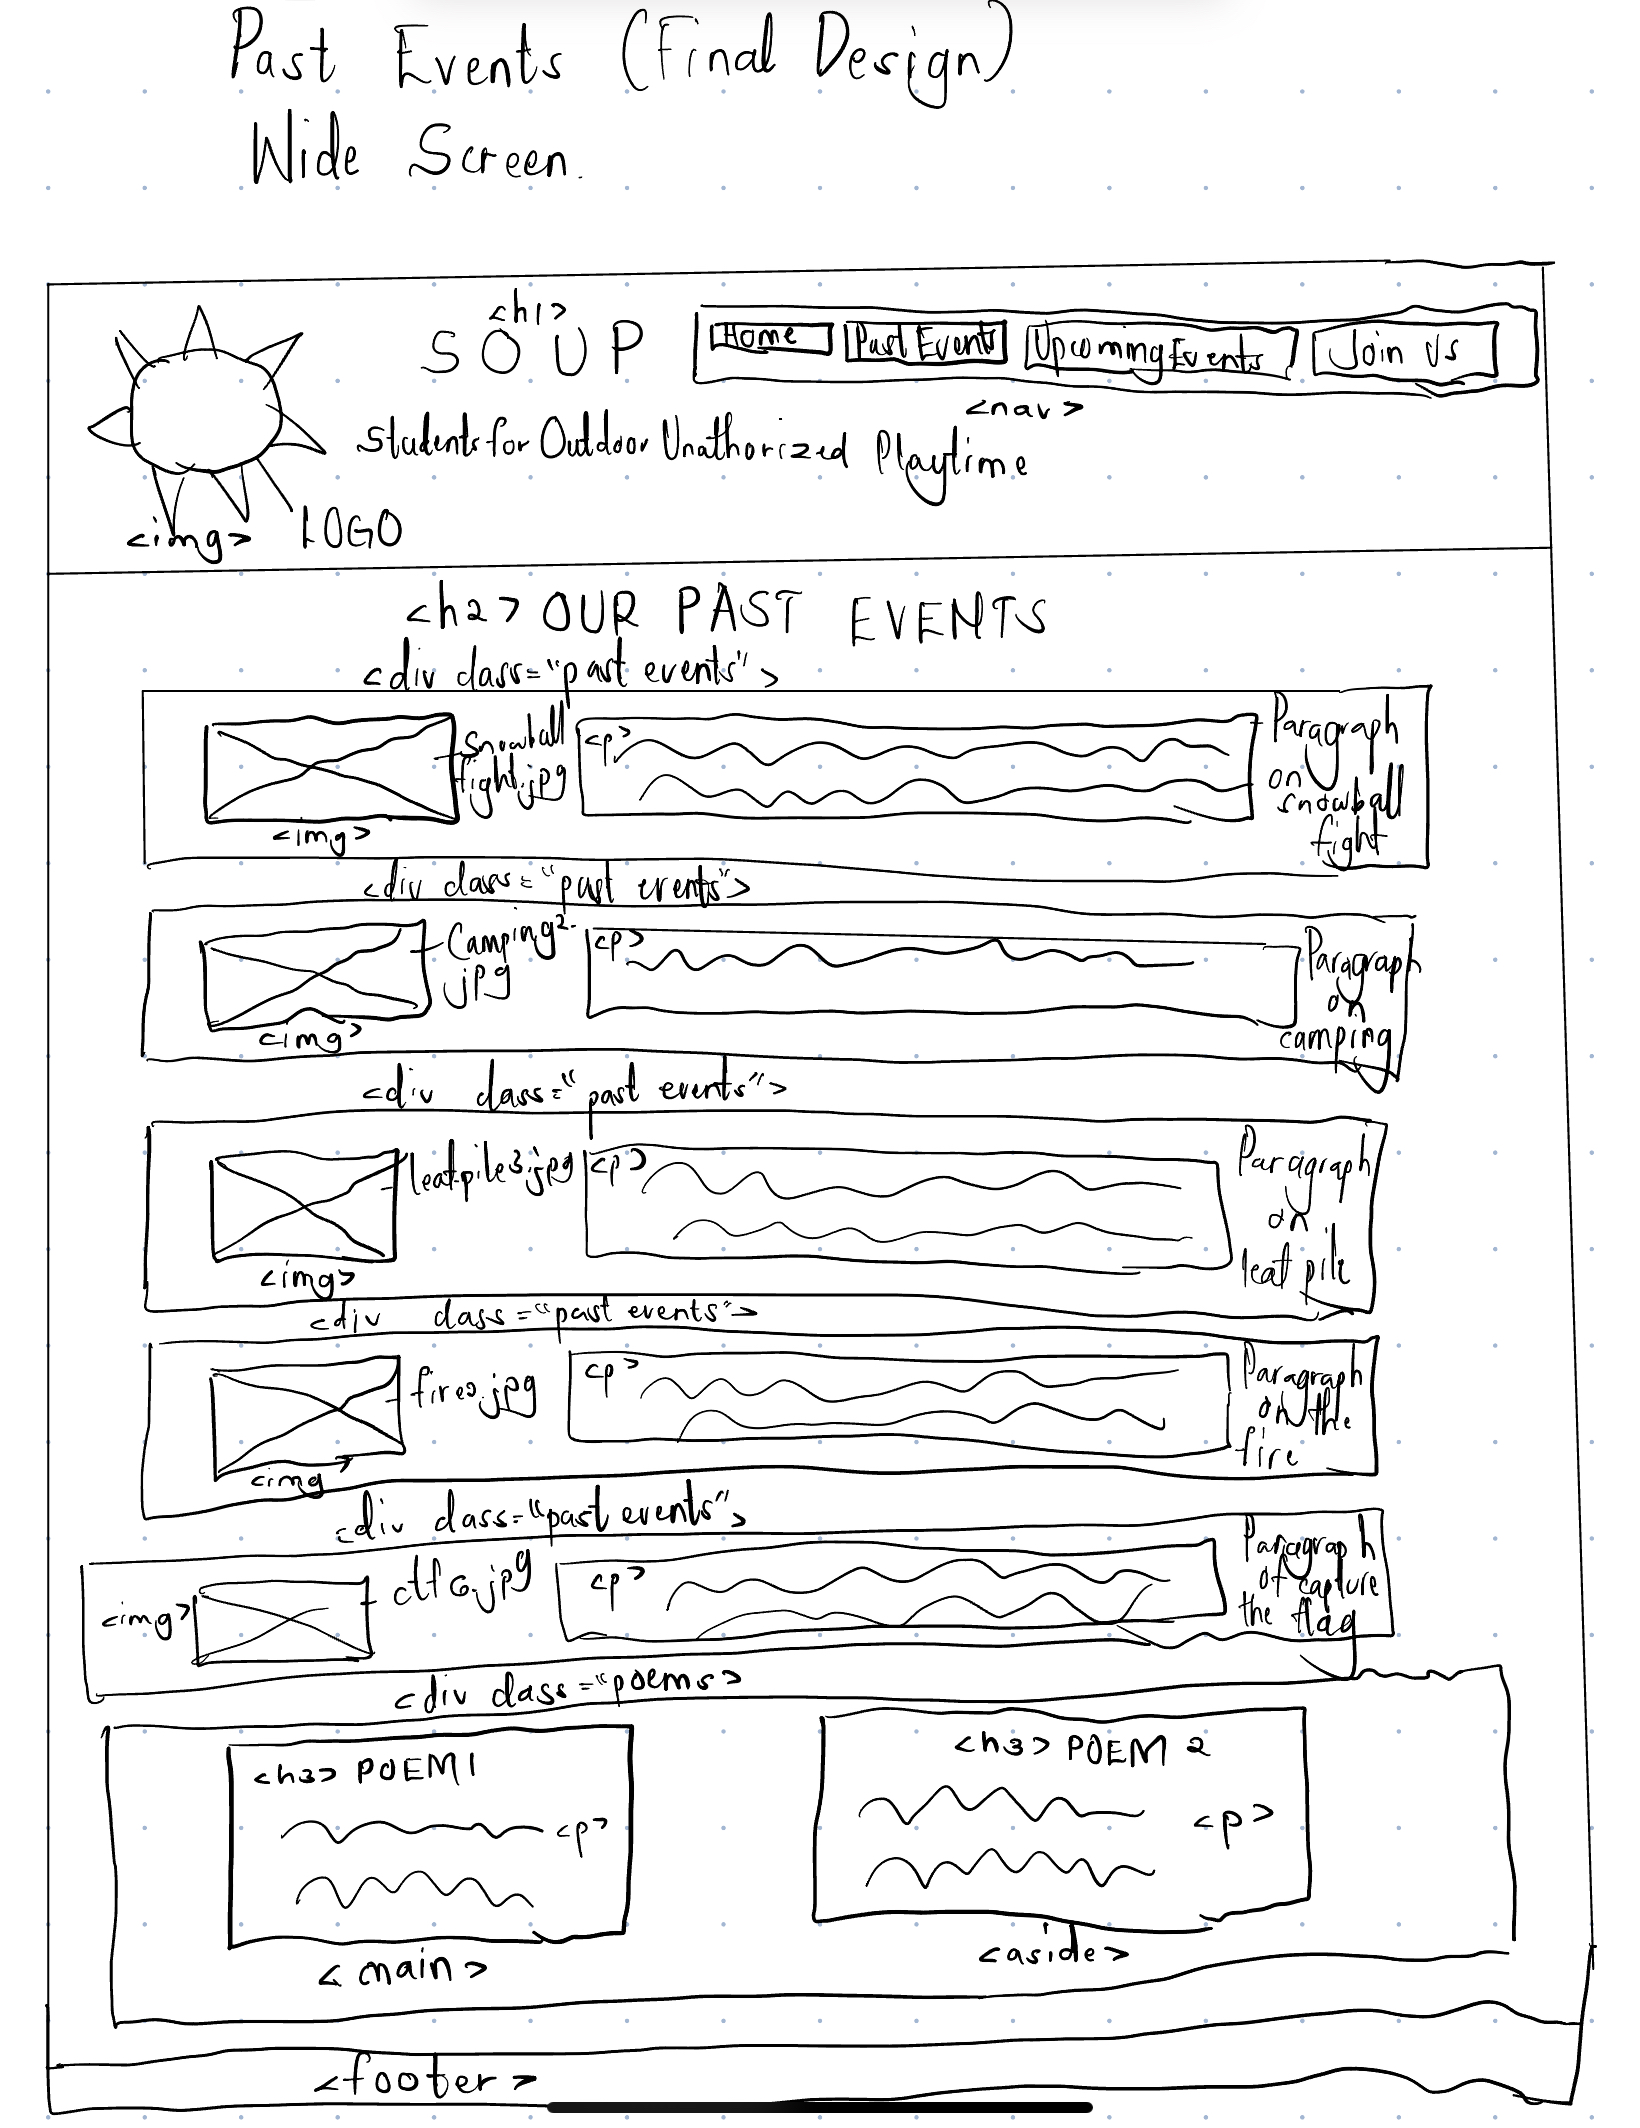 Past Events (Final Design)
Wide Screen.
<h1>
SOUP
Home
Past Events
Upcoming Events
Join Us
<nav>
Students for Outdoor Unathorized Playtime
<img>
LOGO
<h2> OUR PAST EVENTS
<div class="past events">
Snowball
fight.jpg
<img>
<p>
Paragraph
on
snowball
fight
<div class="past events">
Camping2.
jpg
<img>
<p>
Paragraph
on
camping
<div class="past events">
leafpile3.jpg
<img>
<p>
Paragraph
on
leaf pile
<div class="past events">
fire2.jpg
<img>
<p>
Paragraph
on the
fire
<div class="past events">
<img>
ctf6.jpg
<p>
Paragraph
of capture
the flag
<div class="poems>
<h3> POEM 1
<p>
<main>
<h3> POEM 2
<p>
<aside>
<footer>